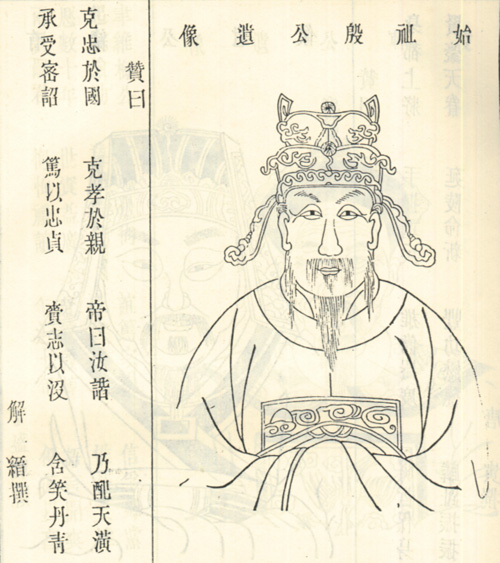 始祖殷公遺像
贊曰
克忠於國 克孝於親 帝曰汝諧 乃配天潢
承受密詔 篤以忠貞 賫志以沒 含笑丹青
解縉撰